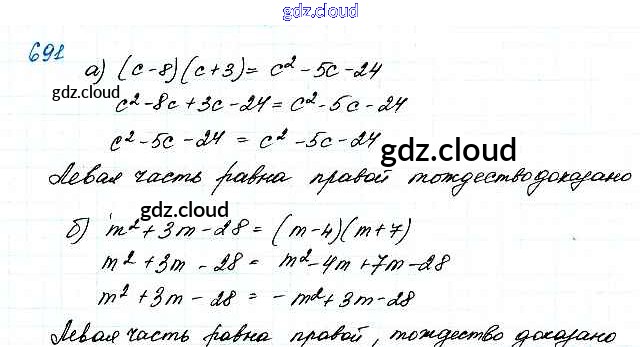 gdz.cloud
691
а) (c-8)(c+3) = c² - 5c - 24
gdz.cloud
c² - 8c + 3c - 24 = c² - 5c - 24
c² - 5c - 24 = c² - 5c - 24
gdz.cloud
Левая часть равна правой тождество доказано
gdz.cloud
б) m² + 3m - 28 = (m-4)(m+7)
m² + 3m - 28 = m² - 4m + 7m - 28
m² + 3m - 28 = - m² + 3m - 28
Левая часть равна правой, тождество доказано